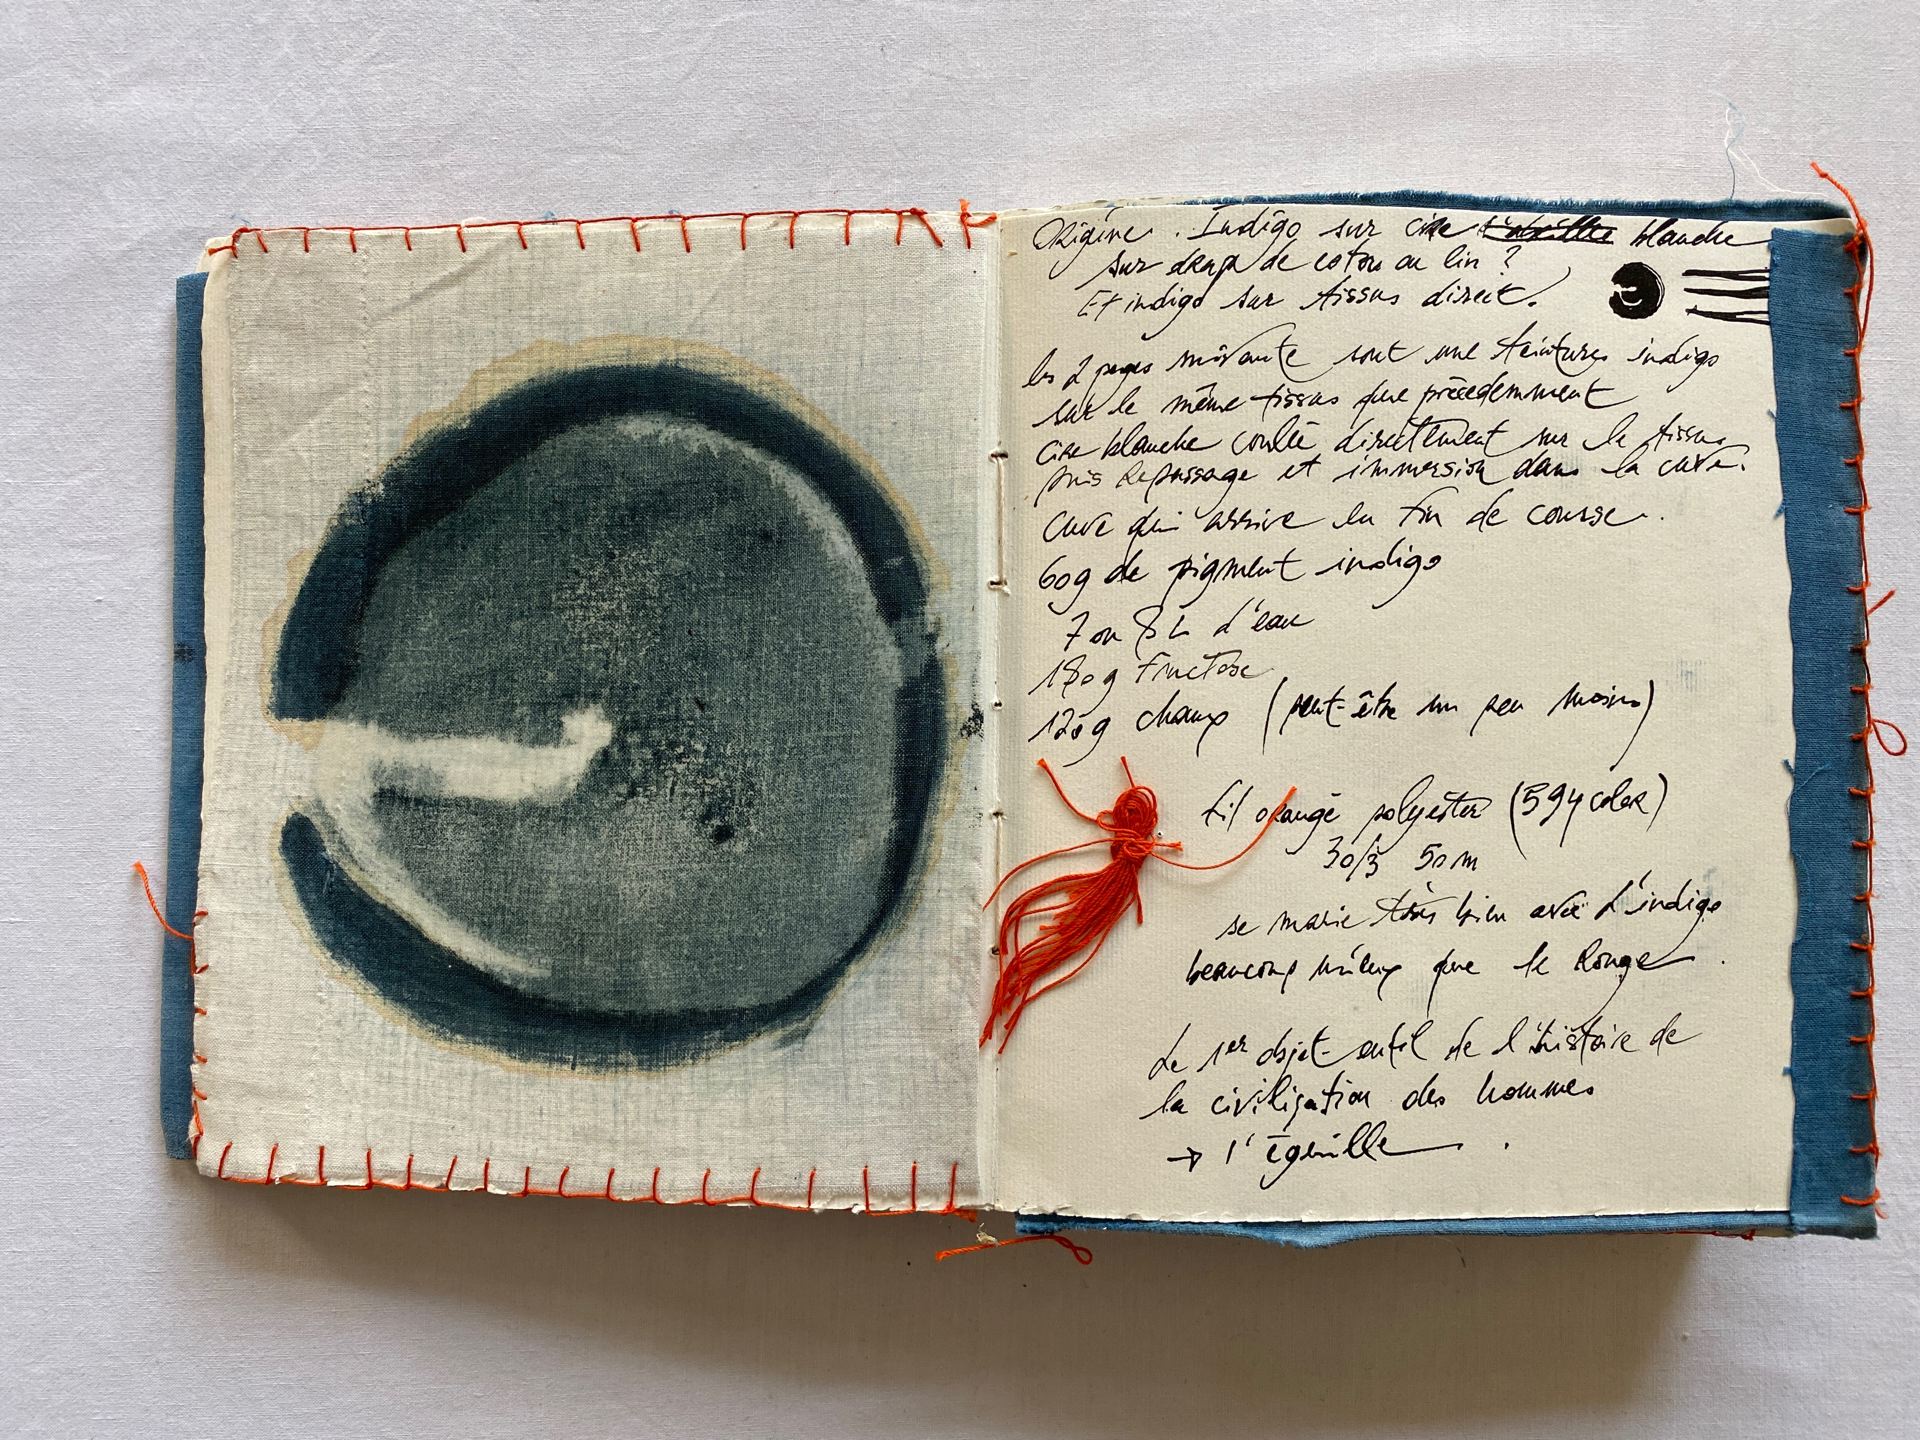 Origine. Indigo sur cire blanche
sur drap de coton ou lin ?
Et indigo sur tissus direct.
les 2 pages suivante sont une teintures indigo
sur le même tissus que précedemment
cire blanche coulée directement sur le tissus
puis repassage et immersion dans la cuve.
Cuve qui arrive en fin de course.
60g de pigment indigo
7 ou 8 L d'eau
180g fructose
120g chaux (peut-être un peu moins)
fil orangé polyester (594 color)
30/3 50m
se marie très bien avec l'indigo
beaucoup mieux que le Rouge.
Le 1er objet-outil de l'histoire de
la civilisation des hommes
→ l'éguille.